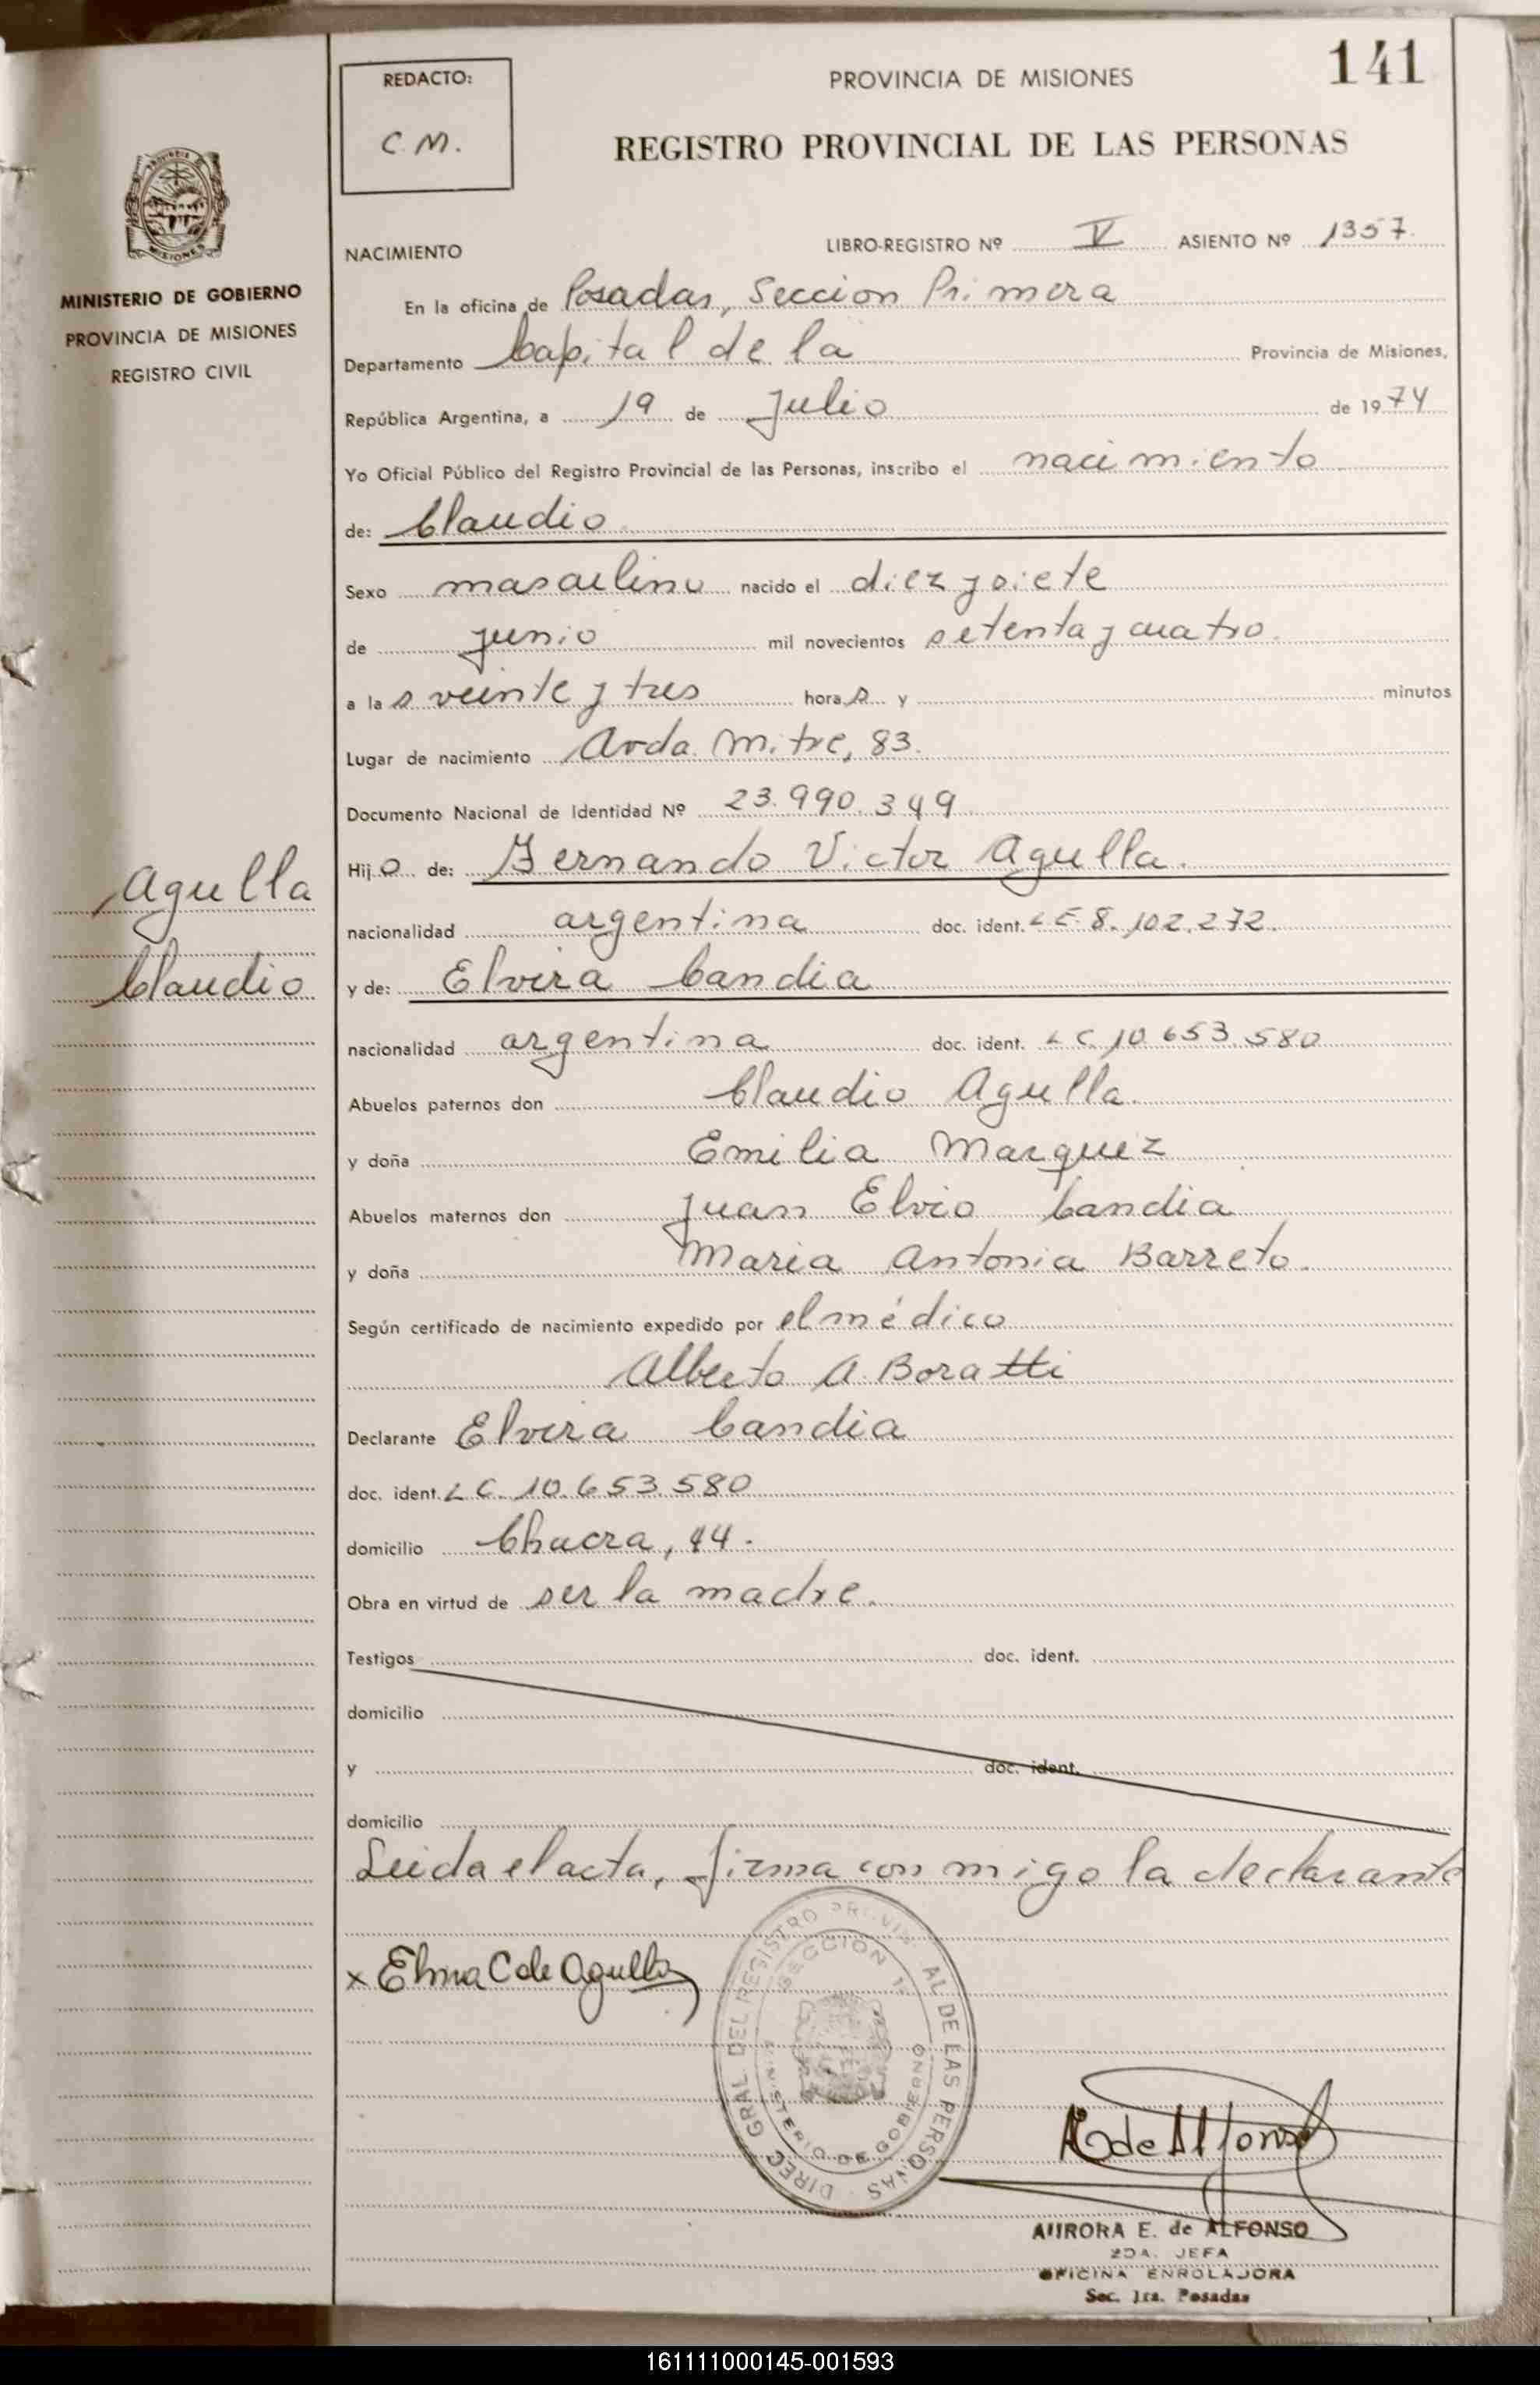 141
REDACTO:
C. M.
PROVINCIA DE MISIONES
REGISTRO PROVINCIAL DE LAS PERSONAS
MISIONES
MINISTERIO DE GOBIERNO
PROVINCIA DE MISIONES
REGISTRO CIVIL
NACIMIENTO
LIBRO-REGISTRO Nº V ASIENTO Nº 1357.
En la oficina de Posadas, Seccion Primera
Departamento Capital de la Provincia de Misiones,
República Argentina, a 19 de Julio de 1974
Yo Oficial Público del Registro Provincial de las Personas, inscribo el nacimiento
de: Claudio
Sexo masculino nacido el diez y siete
de junio mil novecientos setenta y cuatro.
a las veinte y tres horas y minutos
Lugar de nacimiento Avda. Mitre, 83.
Documento Nacional de Identidad Nº 23.990.349
Hijo de: Fernando Victor Agulla.
Agulla
nacionalidad argentina doc. ident. L E. 8.102.272.
Claudio
y de: Elvira Candia
nacionalidad argentina doc. ident. L C. 10.653.580
Abuelos paternos don Claudio Agulla.
y doña Emilia Marquez
Abuelos maternos don Juan Elvio Candia
y doña Maria Antonia Barreto.
Según certificado de nacimiento expedido por el médico
Alberto A. Boratti
Declarante Elvira Candia
doc. ident. L C. 10.653.580
domicilio Chacra, 44.
Obra en virtud de ser la madre.
Testigos doc. ident.
domicilio
y doc. ident.
domicilio
Leida el acta, firma con migo la declarante
x Elvira C de Agulla
DIREC GRAL DEL REGISTRO PROVINCIAL DE LAS PERSONAS
SECCION 1ª
MINISTERIO DE GOBIERNO
A E de Alfonso
AURORA E. de ALFONSO
2DA. JEFA
OFICINA ENROLADORA
Sec. 1ra. Posadas
161111000145-001593